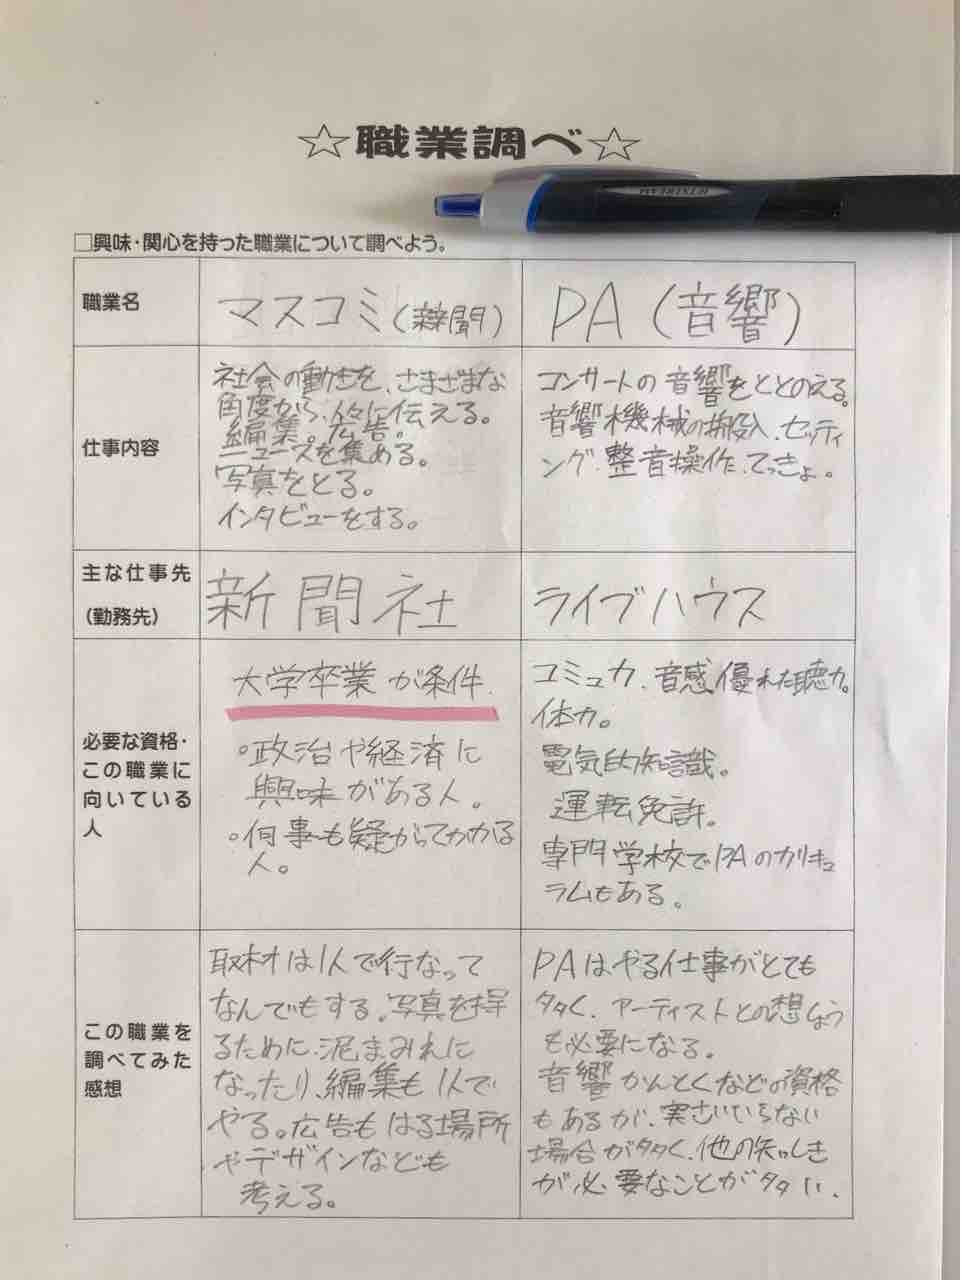 ☆職業調べ☆
JETSTREAM
□興味・関心を持った職業について調べよう。
職業名
マスコミ(新聞)
PA(音響)
仕事内容
社会の動きを、さまざまな
角度から、人々に伝える。
編集。広告。
ニュースを集める。
写真をとる。
インタビューをする。
コンサートの音響をととのえる。
音響機械の搬入、セッティ
ング、整音操作、てっきょ。
主な仕事先
(勤務先)
新聞社
ライブハウス
必要な資格・
この職業に
向いている
人
大学卒業が条件.
。政治や経済に
興味がある人。
。何事も疑がってかかる
人。
コミュ力、音感、優れた聴力。
体力。
電気的知識。
運転免許。
専門学校でPAのカリキュ
ラムもある。
この職業を
調べてみた
感想
取材は1人で行なって
なんでもする。写真を得
るために、泥まみれに
なったり、編集も1人で
やる。広告もはる場所
やデザインなども
考える。
PAはやる仕事がとても
多く、アーティストとの想
も必要になる。
音響かんとくなどの資格
もあるが、実さいいらない
場合が多く、他の知しき
が必要なことが多い.